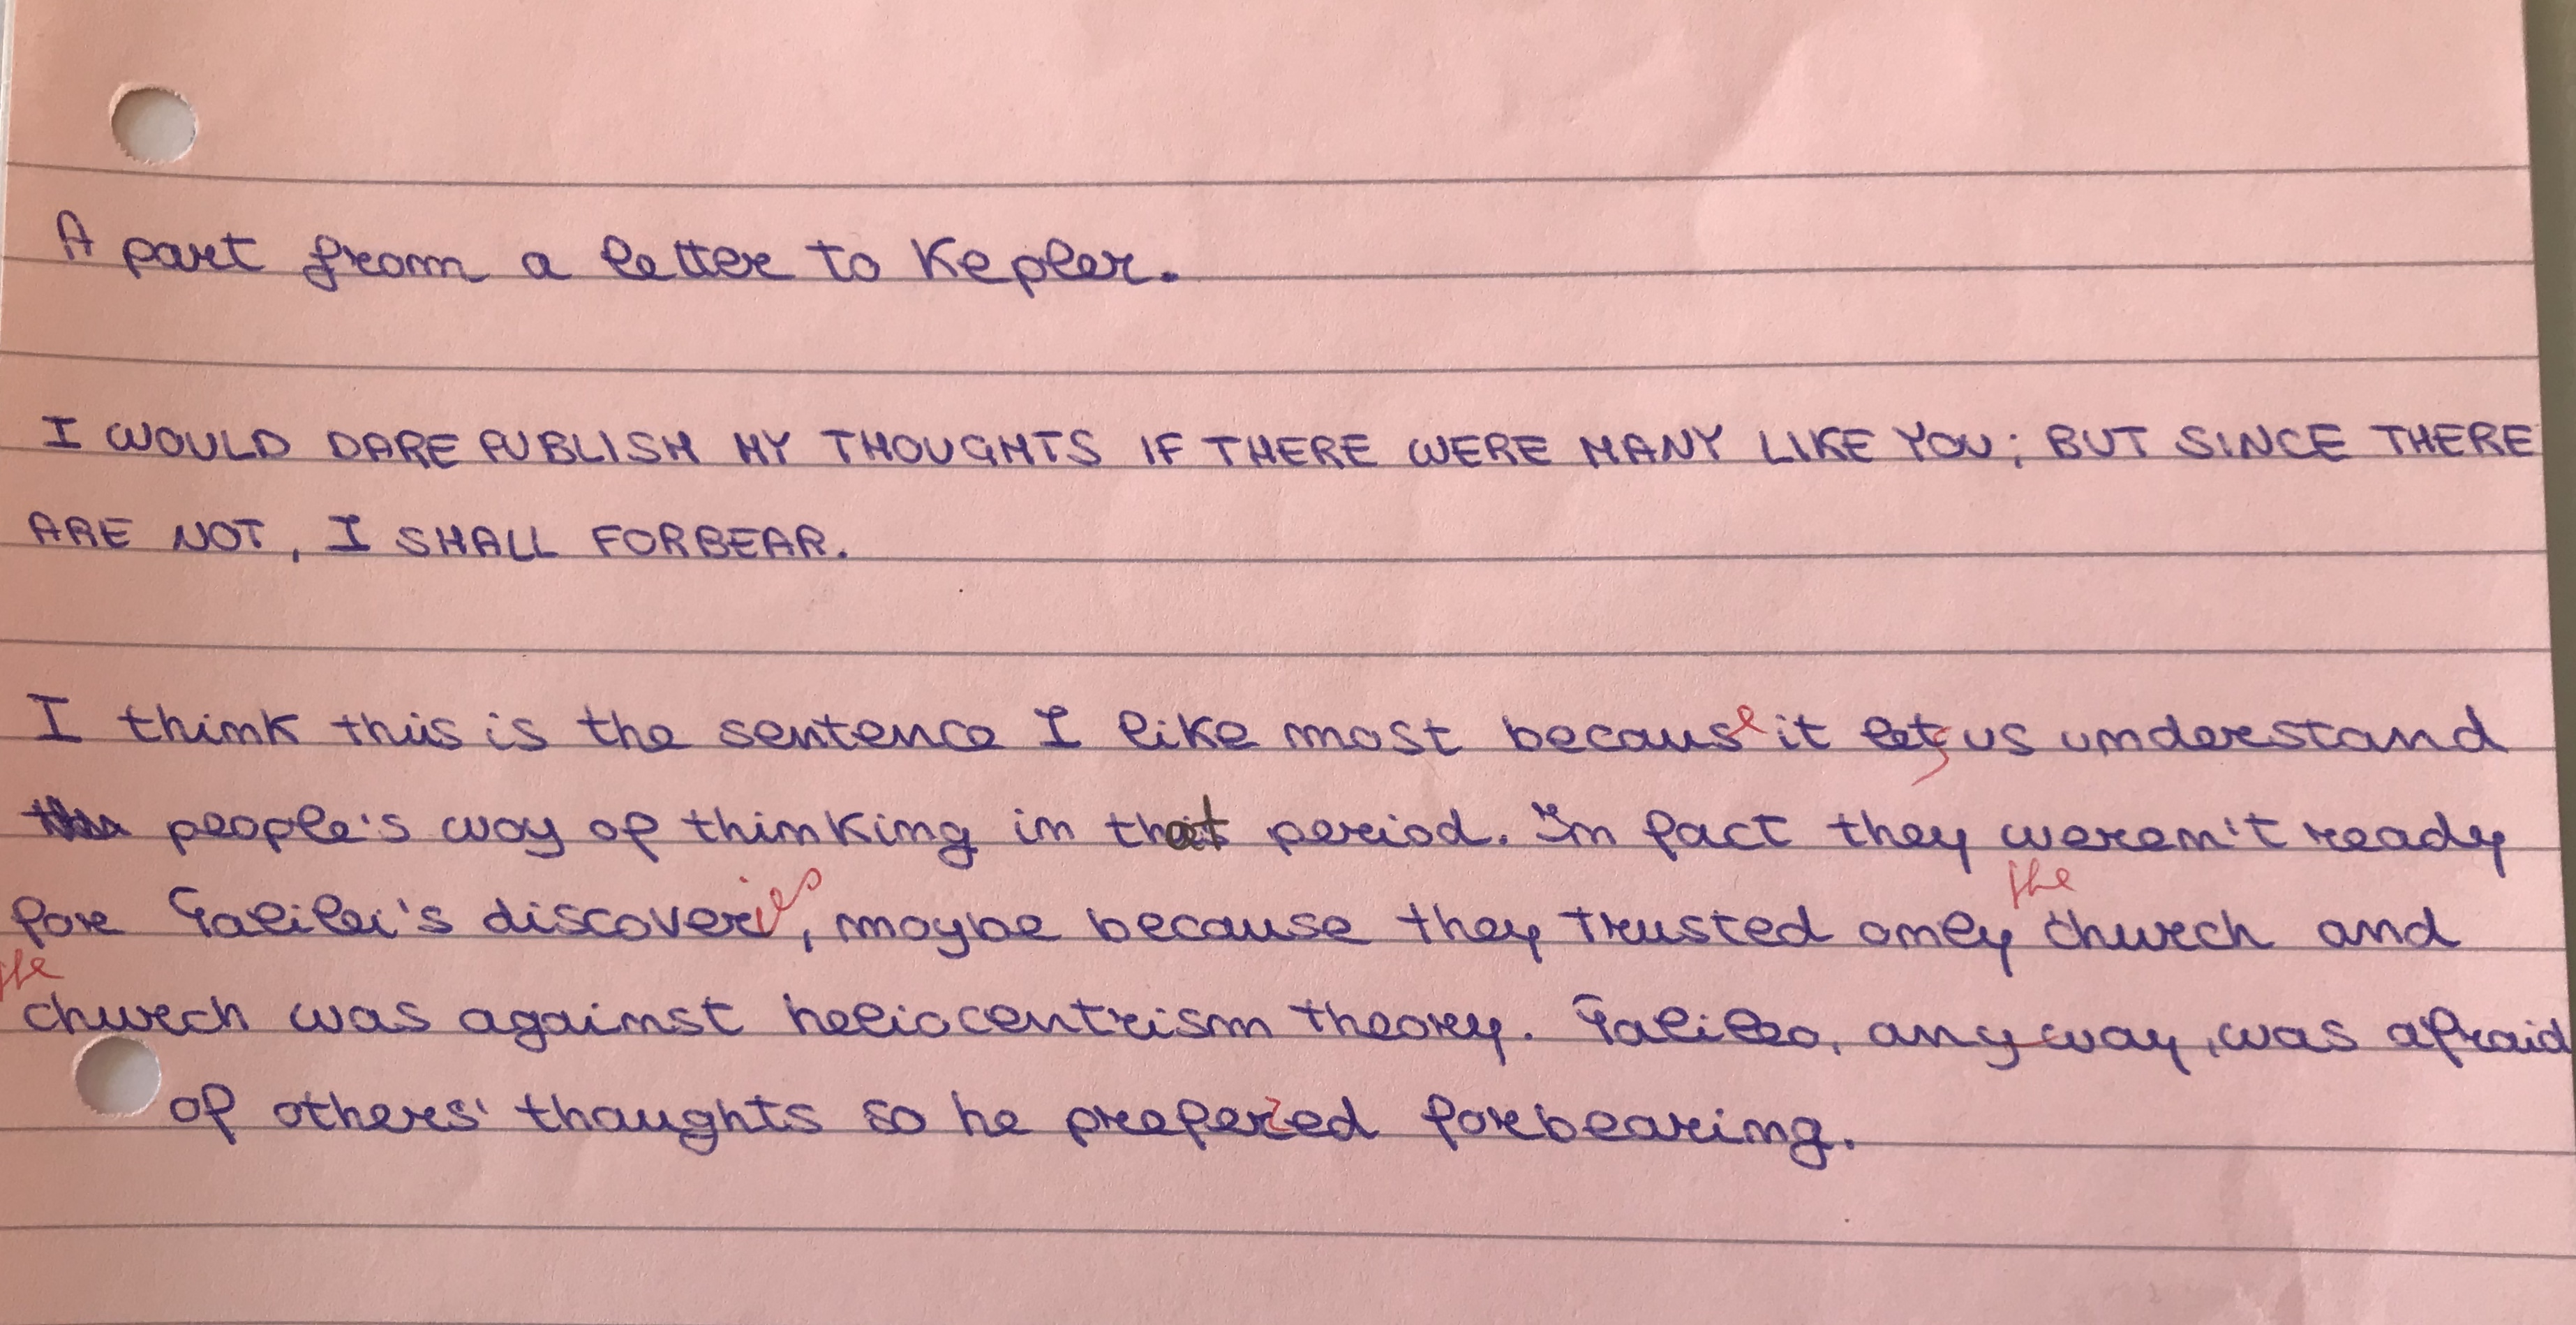 A part from a letter to Kepler.
I WOULD DARE PUBLISH MY THOUGHTS IF THERE WERE MANY LIKE YOU; BUT SINCE THERE
ARE NOT, I SHALL FORBEAR.
I think this is the sentence I like most because it lets us understand
people's way of thinking in that period. In fact they weren't ready
the
for Galilei's discoveries, maybe because they trusted only church and
the
church was against heliocentrism theory. Galileo, anyway, was afraid
of others' thoughts so he prefered forbearing.